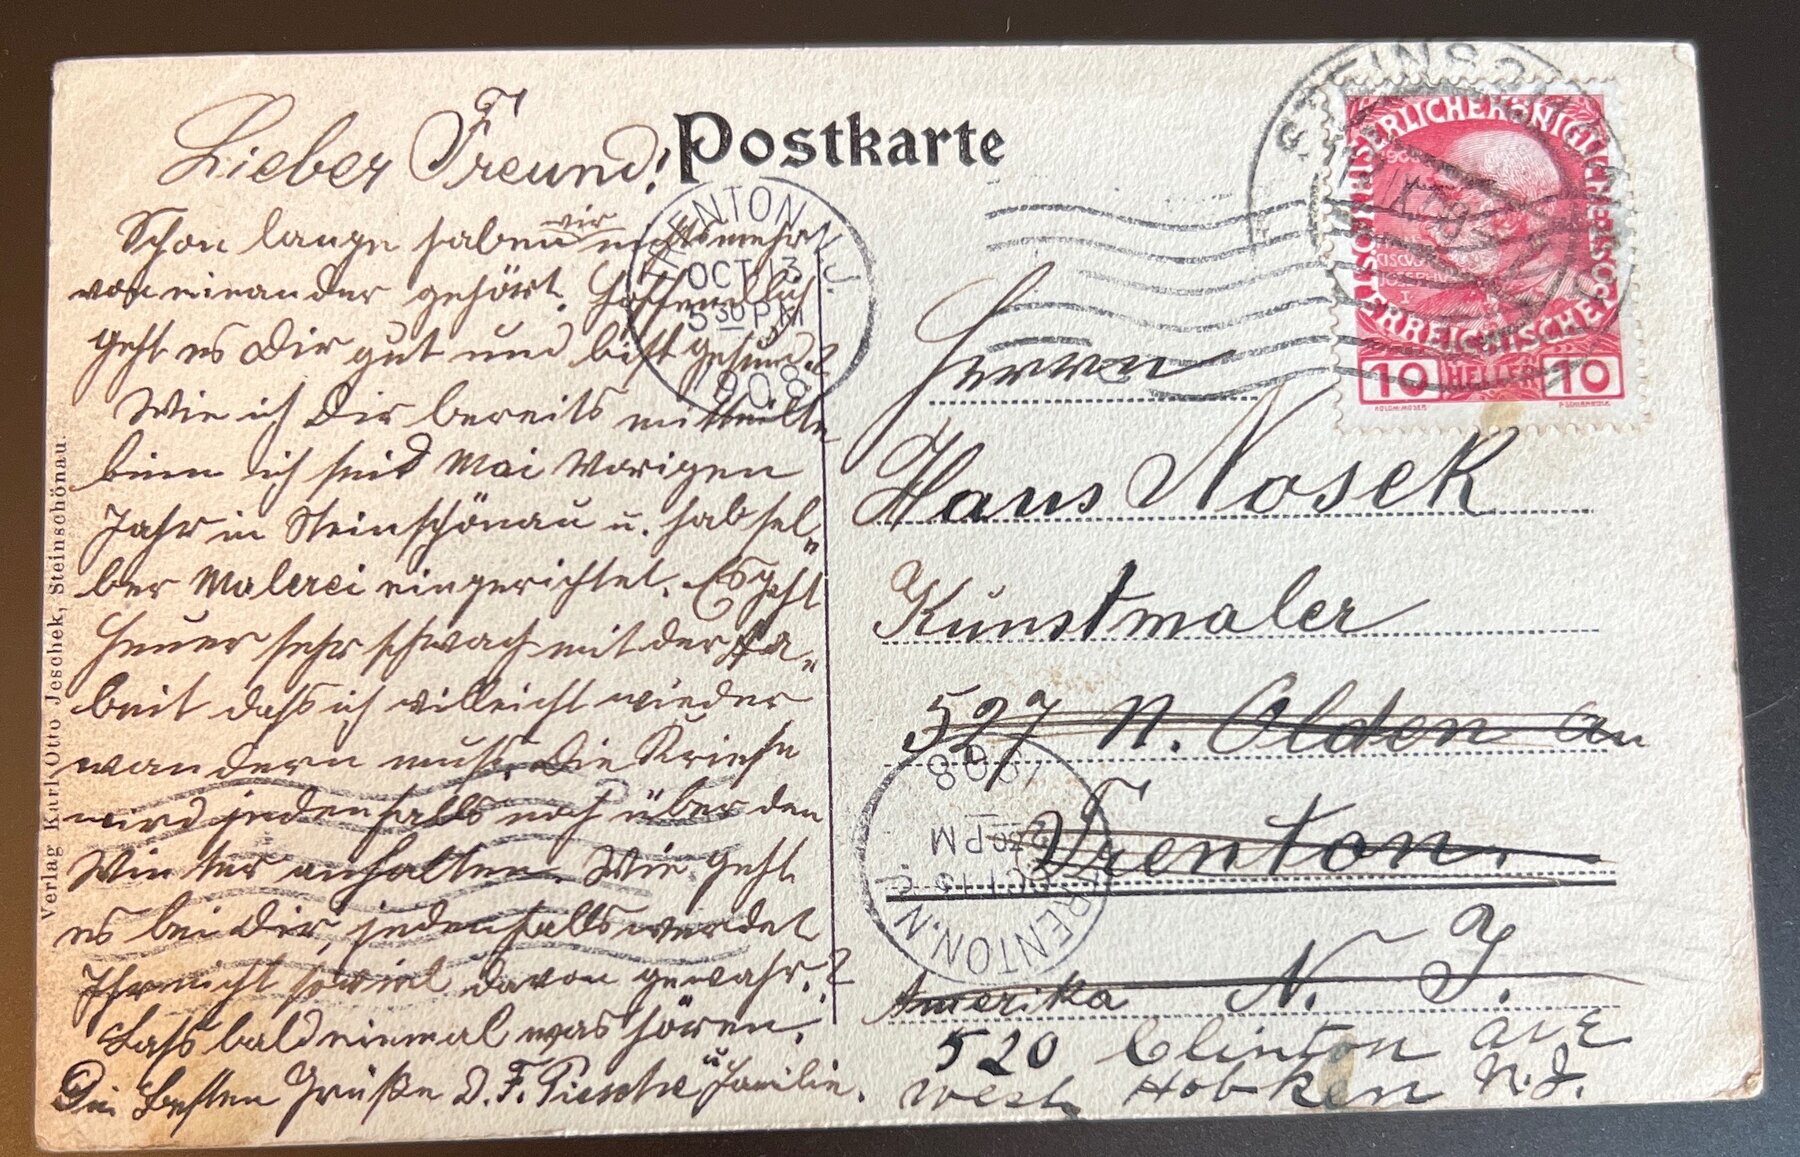 Postkarte
Lieber Freund!
Schon lange haben wir nichts mehr
von einander gehört. Hoffendlich
geht es Dir gut und bist gesund?
Wie ich Dir bereits mitteilte
binn ich seid Mai Vorigen
Jahr in Steinschönau u. hab sel„
ber Malerei eingerichtet. Es geht
Heuer sehr schwach mit der
beit dass ich villeicht wieder
wandern muss. Die Kriese
wird jedenfalls noch über den
Winter anhalten. Wie geht
es bei Dir jedenfalls werdet
Ihr nicht soviel davon gewahr.?
Lass bald einmal was hören.
Die Besten Grüße D. F. Piesche u Familie.
Verlag Karl Otto Jeschek, Steinschönau.
TRENTON, N.J.
OCT 13
5 30 PM
1908
STEINSCH
KAISERLICHE KÖNIGLICHE
ÖSTERREICHISCHE POST
10 HELLER 10
Herrn
Hans Nosek
Kunstmaler
527 N. Olden av
Trenton.
Amerika N. J.
520 Clinton AVE
West Hobken N.J.
TRENTON, N.
OCT 13
30 PM
1908